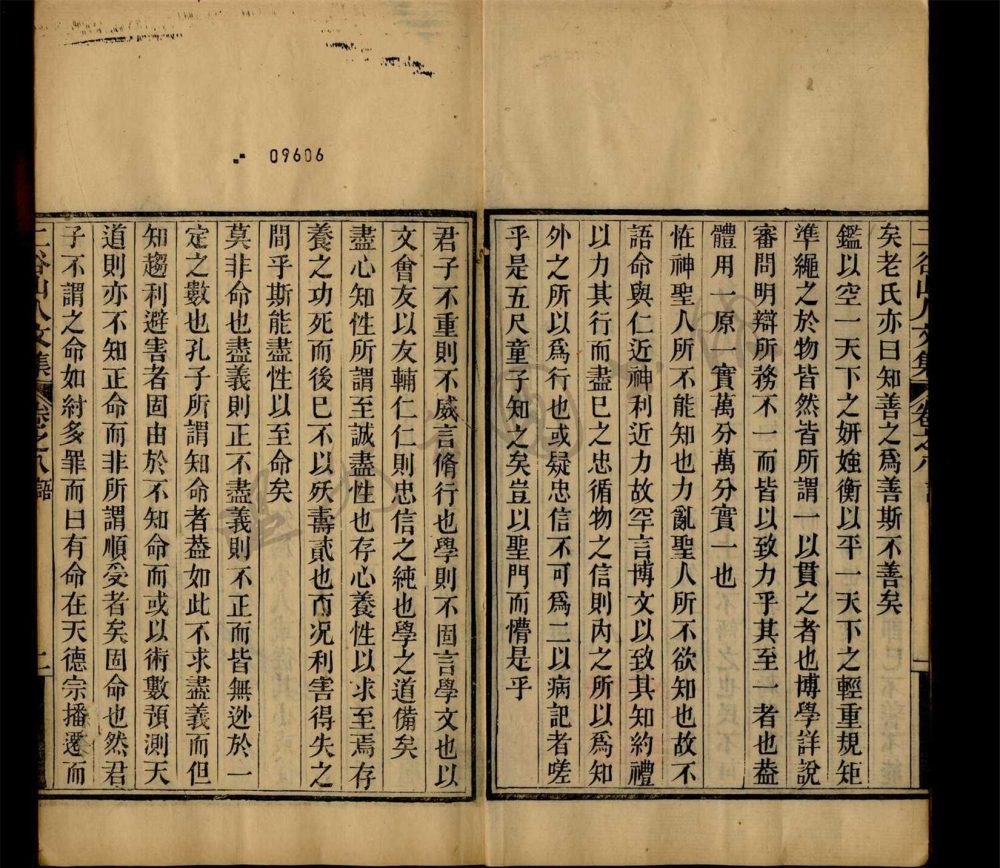 矣老氏亦曰知善之爲善斯不善矣
鑑以空一天下之妍媸衡以平一天下之輕重規矩
準繩之於物皆然皆所謂一以貫之者也博學詳說
審問明辯所務不一而皆以致力乎其至一者也葢
體用一原一實萬分萬分實一也
恠神聖人所不能知也力亂聖人所不欲知也故不
語命與仁近神利近力故罕言博文以致其知約禮
以力其行而盡已之忠循物之信則內之所以爲知
外之所以爲行也或疑忠信不可爲二以病記者嗟
乎是五尺童子知之矣豈以聖門而懵是乎
三谷山人文集
卷之八
二
君子不重則不威言脩行也學則不固言學文也以
文會友以友輔仁仁則忠信之純也學之道備矣
盡心知性所謂至誠盡性也存心養性以求至焉存
養之功死而後已不以殀壽貳也而况利害得失之
間乎斯能盡性以至命矣
莫非命也盡義則正不盡義則不正而皆無逊於一
定之數也孔子所謂知命者葢如此不求盡義而但
知趨利避害者固由於不知命而或以術數預測天
道則亦不知正命而非所謂順受者矣固命也然君
子不謂之命如紂多罪而曰有命在天德宗播遷而
09606